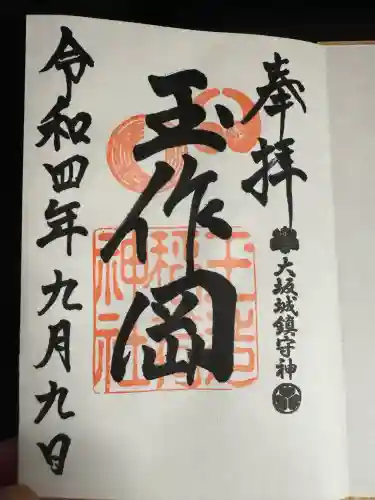 奉拝
大坂城鎮守神
玉作岡
玉造稲荷神社
令和四年九月九日